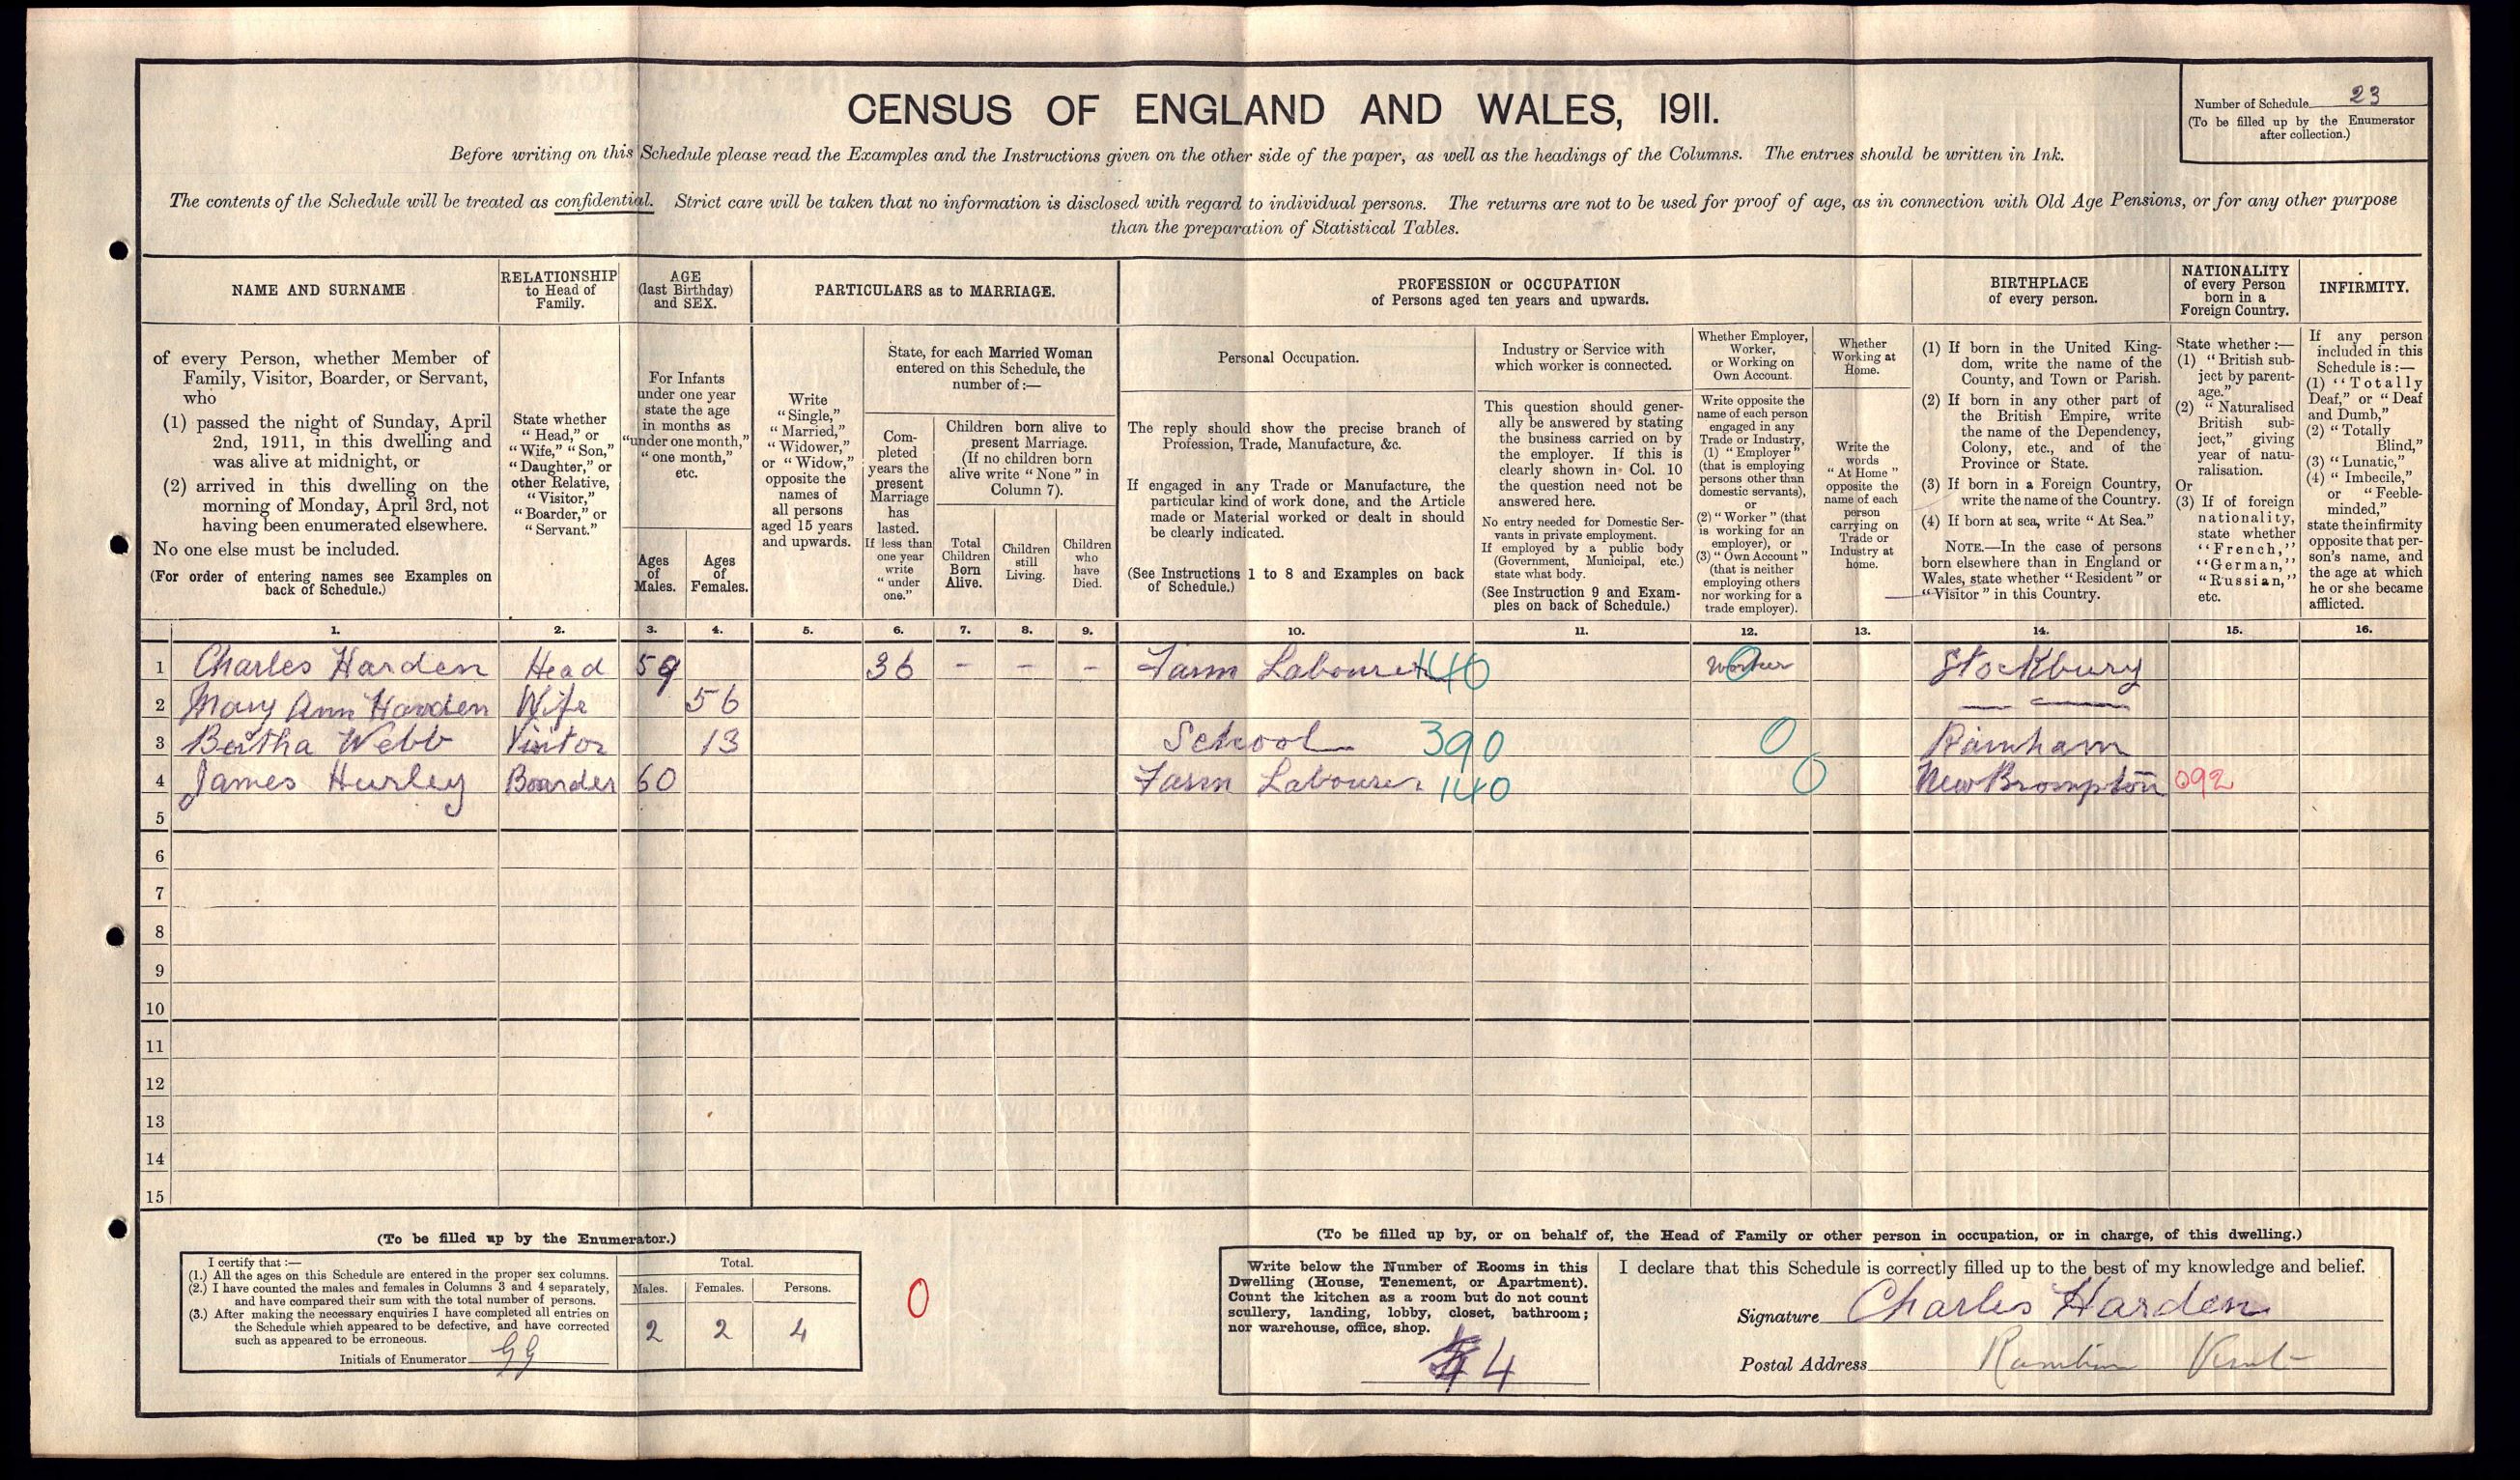 CENSUS OF ENGLAND AND WALES, 1911.
Number of Schedule 23
(To be filled up by the Enumerator
after collection.)
Before writing on this Schedule please read the Examples and the Instructions given on the other side of the paper, as well as the headings of the Columns. The entries should be written in Ink.
The contents of the Schedule will be treated as confidential. Strict care will be taken that no information is disclosed with regard to individual persons. The returns are not to be used for proof of age, as in connection with Old Age Pensions, or for any other purpose
than the preparation of Statistical Tables.
NAME AND SURNAME
of every Person, whether Member of
Family, Visitor, Boarder, or Servant,
who
(1) passed the night of Sunday, April
2nd, 1911, in this dwelling and
was alive at midnight, or
(2) arrived in this dwelling on the
morning of Monday, April 3rd, not
having been enumerated elsewhere.
No one else must be included.
(For order of entering names see Examples on
back of Schedule.)
RELATIONSHIP
to Head of
Family.
State whether
"Head," or
"Wife," "Son,"
"Daughter," or
other Relative,
"Visitor,"
"Boarder," or
"Servant."
AGE
(last Birthday)
and SEX.
For Infants
under one year
state the age
in months as
"under one month,"
"one month,"
etc.
Ages
of
Males.
Ages
of
Females.
PARTICULARS as to MARRIAGE.
Write
"Single,"
"Married,"
"Widower,"
or "Widow,"
opposite the
names of
all persons
aged 15 years
and upwards.
State, for each Married Woman
entered on this Schedule, the
number of :—
Com-
pleted
years the
present
Marriage
has
lasted.
If less than
one year
write
"under
one."
Children born alive to
present Marriage.
(If no children born
alive write "None" in
Column 7).
Total
Children
Born
Alive.
Children
still
Living.
Children
who
have
Died.
PROFESSION or OCCUPATION
of Persons aged ten years and upwards.
Personal Occupation.
The reply should show the precise branch of
Profession, Trade, Manufacture, &c.
If engaged in any Trade or Manufacture, the
particular kind of work done, and the Article
made or Material worked or dealt in should
be clearly indicated.
(See Instructions 1 to 8 and Examples on back
of Schedule.)
Industry or Service with
which worker is connected.
This question should gener-
ally be answered by stating
the business carried on by
the employer. If this is
clearly shown in Col. 10
the question need not be
answered here.
No entry needed for Domestic Ser-
vants in private employment.
If employed by a public body
(Government, Municipal, etc.)
state what body.
(See Instruction 9 and Exam-
ples on back of Schedule.)
Whether Employer,
Worker,
or Working on
Own Account.
Write opposite the
name of each person
engaged in any
Trade or Industry,
(1) "Employer"
(that is employing
persons other than
domestic servants),
or
(2) "Worker" (that
is working for an
employer), or
(3) "Own Account"
(that is neither
employing others
nor working for a
trade employer).
Whether
Working at
Home.
Write the
words
"At Home"
opposite the
name of each
person
carrying on
Trade or
Industry at
home.
BIRTHPLACE
of every person.
(1) If born in the United King-
dom, write the name of the
County, and Town or Parish.
(2) If born in any other part of
the British Empire, write
the name of the Dependency,
Colony, etc., and of the
Province or State.
(3) If born in a Foreign Country,
write the name of the Country.
(4) If born at sea, write "At Sea."
NOTE.—In the case of persons
born elsewhere than in England or
Wales, state whether "Resident" or
"Visitor" in this Country.
NATIONALITY
of every Person
born in a
Foreign Country.
State whether :—
(1) "British sub-
ject by parent-
age."
(2) "Naturalised
British sub-
ject," giving
year of natu-
ralisation.
Or
(3) If of foreign
nationality,
state whether
"French,"
"German,"
"Russian,"
etc.
INFIRMITY.
If any person
included in this
Schedule is :—
(1) "Totally
Deaf," or "Deaf
and Dumb,"
(2) "Totally
Blind,"
(3) "Lunatic,"
(4) "Imbecile,"
or "Feeble-
minded,"
state the infirmity
opposite that per-
son's name, and
the age at which
he or she became
afflicted.
1. 2. 3. 4. 5. 6. 7. 8. 9. 10. 11. 12. 13. 14. 15. 16.
1 Charles Harden Head 59 36 - - - Farm Labourer 140 Worker 0 Stockbury
2 Mary Ann Harden Wife 56
3 Bertha Webb Visitor 13 School 390 0 Rainham
4 James Hurley Boarder 60 Farm Labourer 140 0 New Brompton 092
5
6
7
8
9
10
11
12
13
14
15
(To be filled up by the Enumerator.)
I certify that :—
(1.) All the ages on this Schedule are entered in the proper sex columns.
(2.) I have counted the males and females in Columns 3 and 4 separately,
and have compared their sum with the total number of persons.
(3.) After making the necessary enquiries I have completed all entries on
the Schedule which appeared to be defective, and have corrected
such as appeared to be erroneous.
Initials of Enumerator GG
Total.
Males. Females. Persons.
2 2 4
0
(To be filled up by, or on behalf of, the Head of Family or other person in occupation, or in charge, of this dwelling.)
Write below the Number of Rooms in this
Dwelling (House, Tenement, or Apartment).
Count the kitchen as a room but do not count
scullery, landing, lobby, closet, bathroom;
nor warehouse, office, shop.
4
I declare that this Schedule is correctly filled up to the best of my knowledge and belief.
Signature Charles Harden
Postal Address Rainham Kent